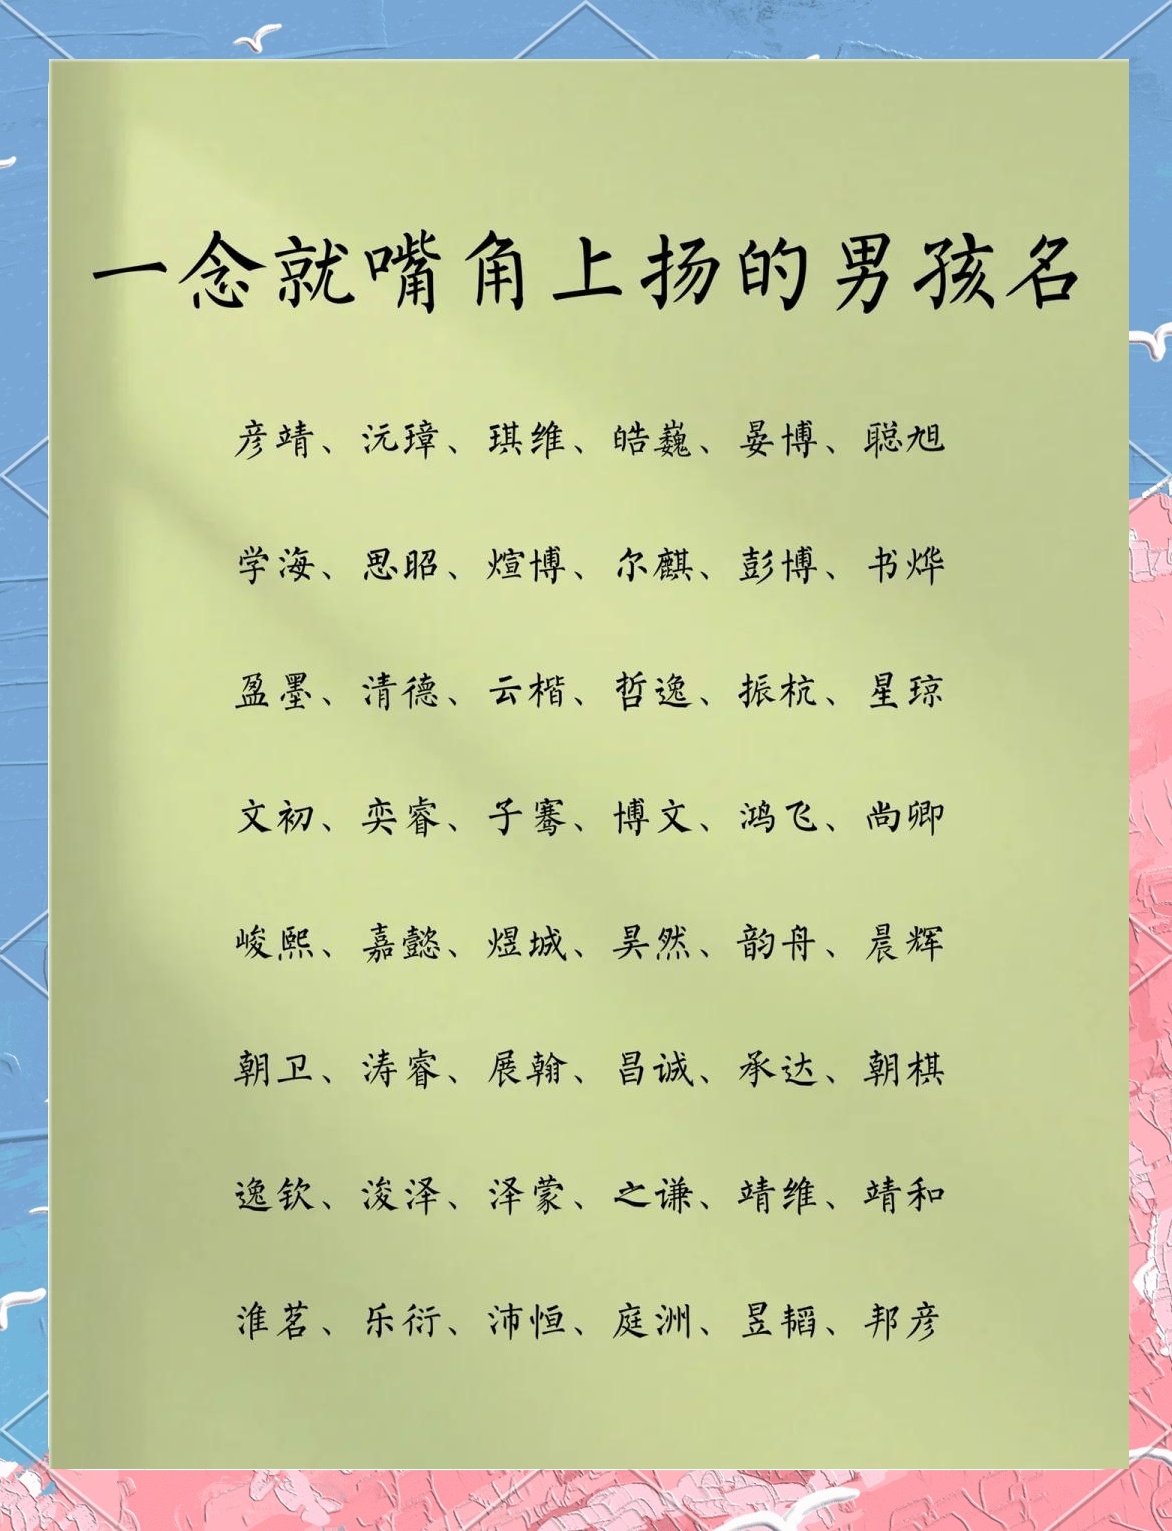 一念就嘴角上扬的男孩名
彦靖、沅璋、琪维、皓巍、晏博、聪旭
学海、思昭、煊博、尔麒、彭博、书烨
盈墨、清德、云楷、哲逸、振杭、星琼
文初、奕睿、子骞、博文、鸿飞、尚卿
峻熙、嘉懿、煜城、昊然、韵舟、晨辉
朝卫、涛睿、展翰、昌诚、承达、朝棋
逸钦、浚泽、泽蒙、之谦、靖维、靖和
淮茗、乐衍、沛恒、庭洲、昱韬、邦彦